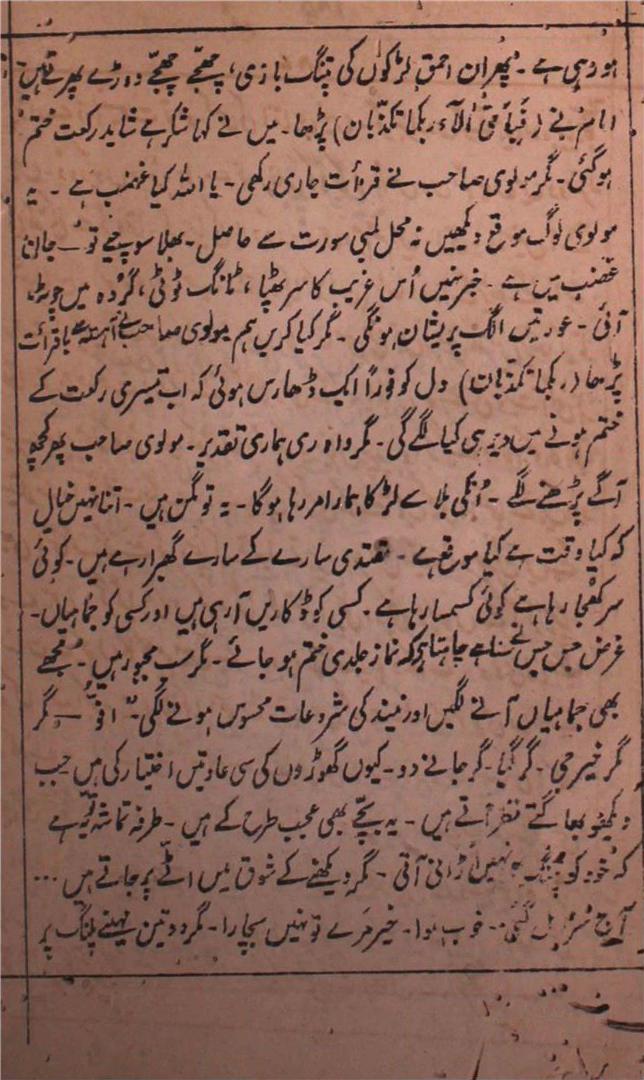 ہو رہی ہے ۔ پھر ان احمق لڑکوں کی پتنگ بازی، چھجے چھجے دوڑے پھرتے ہیں
امام نے (فَبِاَیِّ اٰلَآءِ ربکما تکذّبان) پڑھا ۔ میں نے کہا شکر ہے شاید رکعت ختم
ہو گئی ۔ مگر مولوی صاحب نے قرأت جاری رکھی ۔ یا اللہ کیا غضب ہے ۔ یہ
مولوی لوگ موقع دیکھیں نہ محل لمبی سورت سے حاصل ۔ بھلا سوچیے تو ۔ جان
غضب میں ہے ۔ خبر نہیں اُس غریب کا سر پھٹا ، ٹانگ ٹوٹی ، گردہ میں چوٹ
آئی ۔ عورتیں الگ پریشان ہونگی ۔ مگر کیا کریں ہم مولوی صاحب نے آہستہ باقرأت
پڑھا (ربکما تکذّبان) دل کو فوراً ایک ڈھارس ہوئی کہ اب تیسری رکعت کے
ختم ہونے میں دیر ہی کیا لگے گی ۔ مگر واہ ری ہماری تقدیر ۔ مولوی صاحب پھر کچھ
آگے پڑھنے لگے ۔ اُنکی بلا سے لڑکا ہمارا مر رہا ہوگا ۔ یہ تو مگن ہیں ۔ اتنا نہیں خیال
کہ کیا وقت ہے کیا موقع ہے ۔ مقتدی سارے کے سارے گھبرا رہے ہیں ۔ کوئی
سر کھجا رہا ہے کوئی کسمسا رہا ہے ۔ کسی کو ڈکاریں آ رہی ہیں اور کسی کو جماہیاں ۔
غرض جس جس نے سنا ہے چاہتا ہے کہ نماز جلدی ختم ہو جائے ۔ مگر سب مجبور ہیں ۔ مجھے
بھی جماہیاں آنے لگیں اور نیند کی شروعات محسوس ہونے لگی ۔ افّوہ ۔ مگر
مگر خیر جی ۔ گر گیا ۔ گر جانے دو ۔ کیوں گھوڑوں کی سی عادتیں اختیار کی ہیں جب
دیکھو بھاگتے نظر آتے ہیں ۔ یہ بچے بھی عجب طرح کے ہیں ۔ طرفہ تماشہ یہ ہے
کہ خود کو پتنگ نہیں اڑانی آتی ۔ مگر دیکھنے کے شوق میں اٹے پر جاتے ہیں ...
آج مل گئی ۔ خوب ہوا ۔ خیر مرے تو نہیں بچارا ۔ مگر دو تین مہینے پلنگ پر